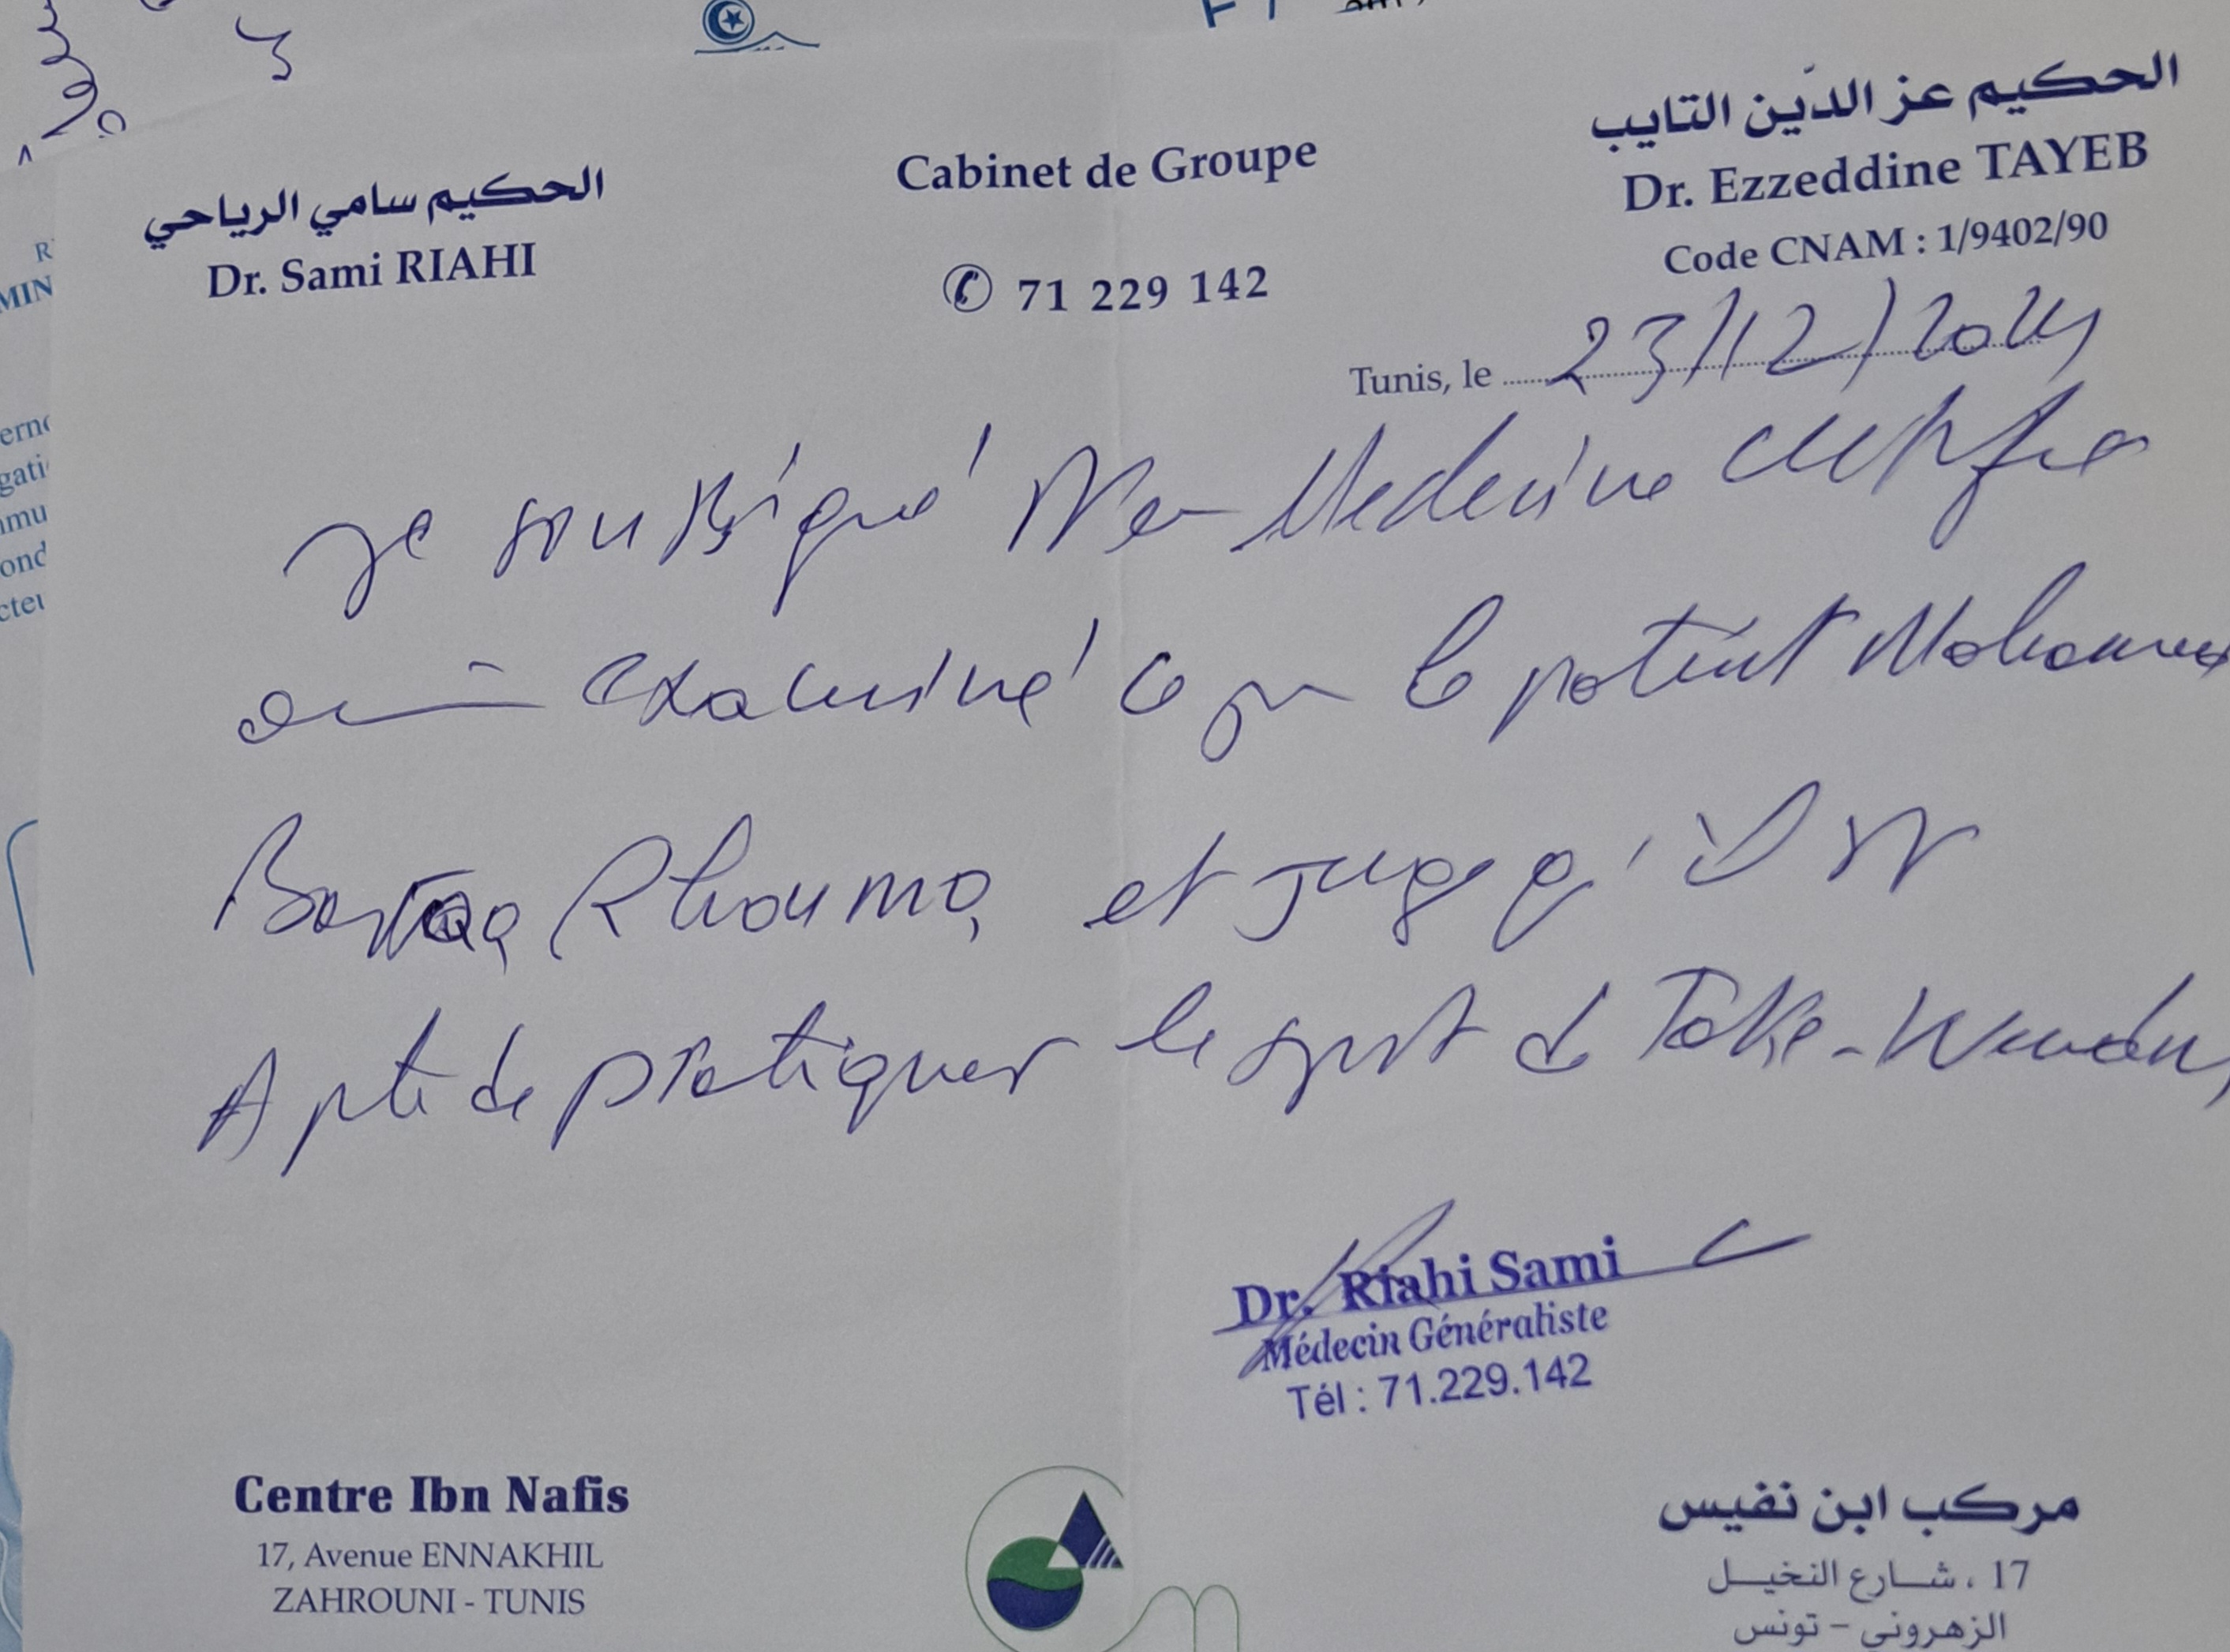 الحكيم عز الدّين التايب
Dr. Ezzeddine TAYEB
Code CNAM : 1/9402/90
Cabinet de Groupe
✆ 71 229 142
الحكيم سامي الرياحي
Dr. Sami RIAHI
Tunis, le 23/12/2024
Je soussigné Medecine certifie
examiné ce jour le patient Mohamed
Rhouma, et juge qu'il est
Apte de pratiquer le sport de Take-Wondu
Dr. Riahi Sami
Médecin Généraliste
Tél : 71.229.142
Centre Ibn Nafis
17, Avenue ENNAKHIL
ZAHROUNI - TUNIS
مركب ابن نفيس
17 ، شارع النخيل
الزهروني - تونس